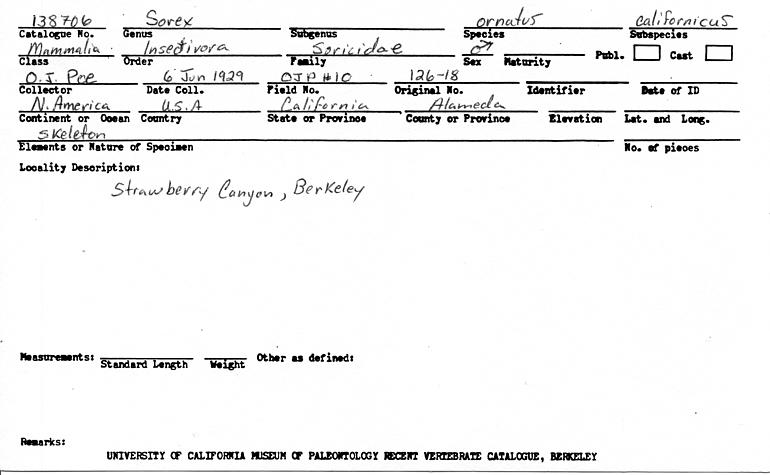 138706 Sorex ornatus californicus
Catalogue No. Genus Subgenus Species Subspecies
Mammalia Insectivora Soricidae ♂ Publ. Cast
Class Order Family Sex Maturity
O.J. Poe 6 Jun 1929 OJP #10 126-18
Collector Date Coll. Field No. Original No. Identifier Date of ID
N. America U.S.A California Alameda
Continent or Ocean Country State or Province County or Province Elevation Lat. and Long.
Skeleton
Elements or Nature of Specimen No. of pieces
Locality Description:
Strawberry Canyon, Berkeley
Measurements: Other as defined:
Standard Length Weight
Remarks:
UNIVERSITY OF CALIFORNIA MUSEUM OF PALEONTOLOGY RECENT VERTEBRATE CATALOGUE, BERKELEY